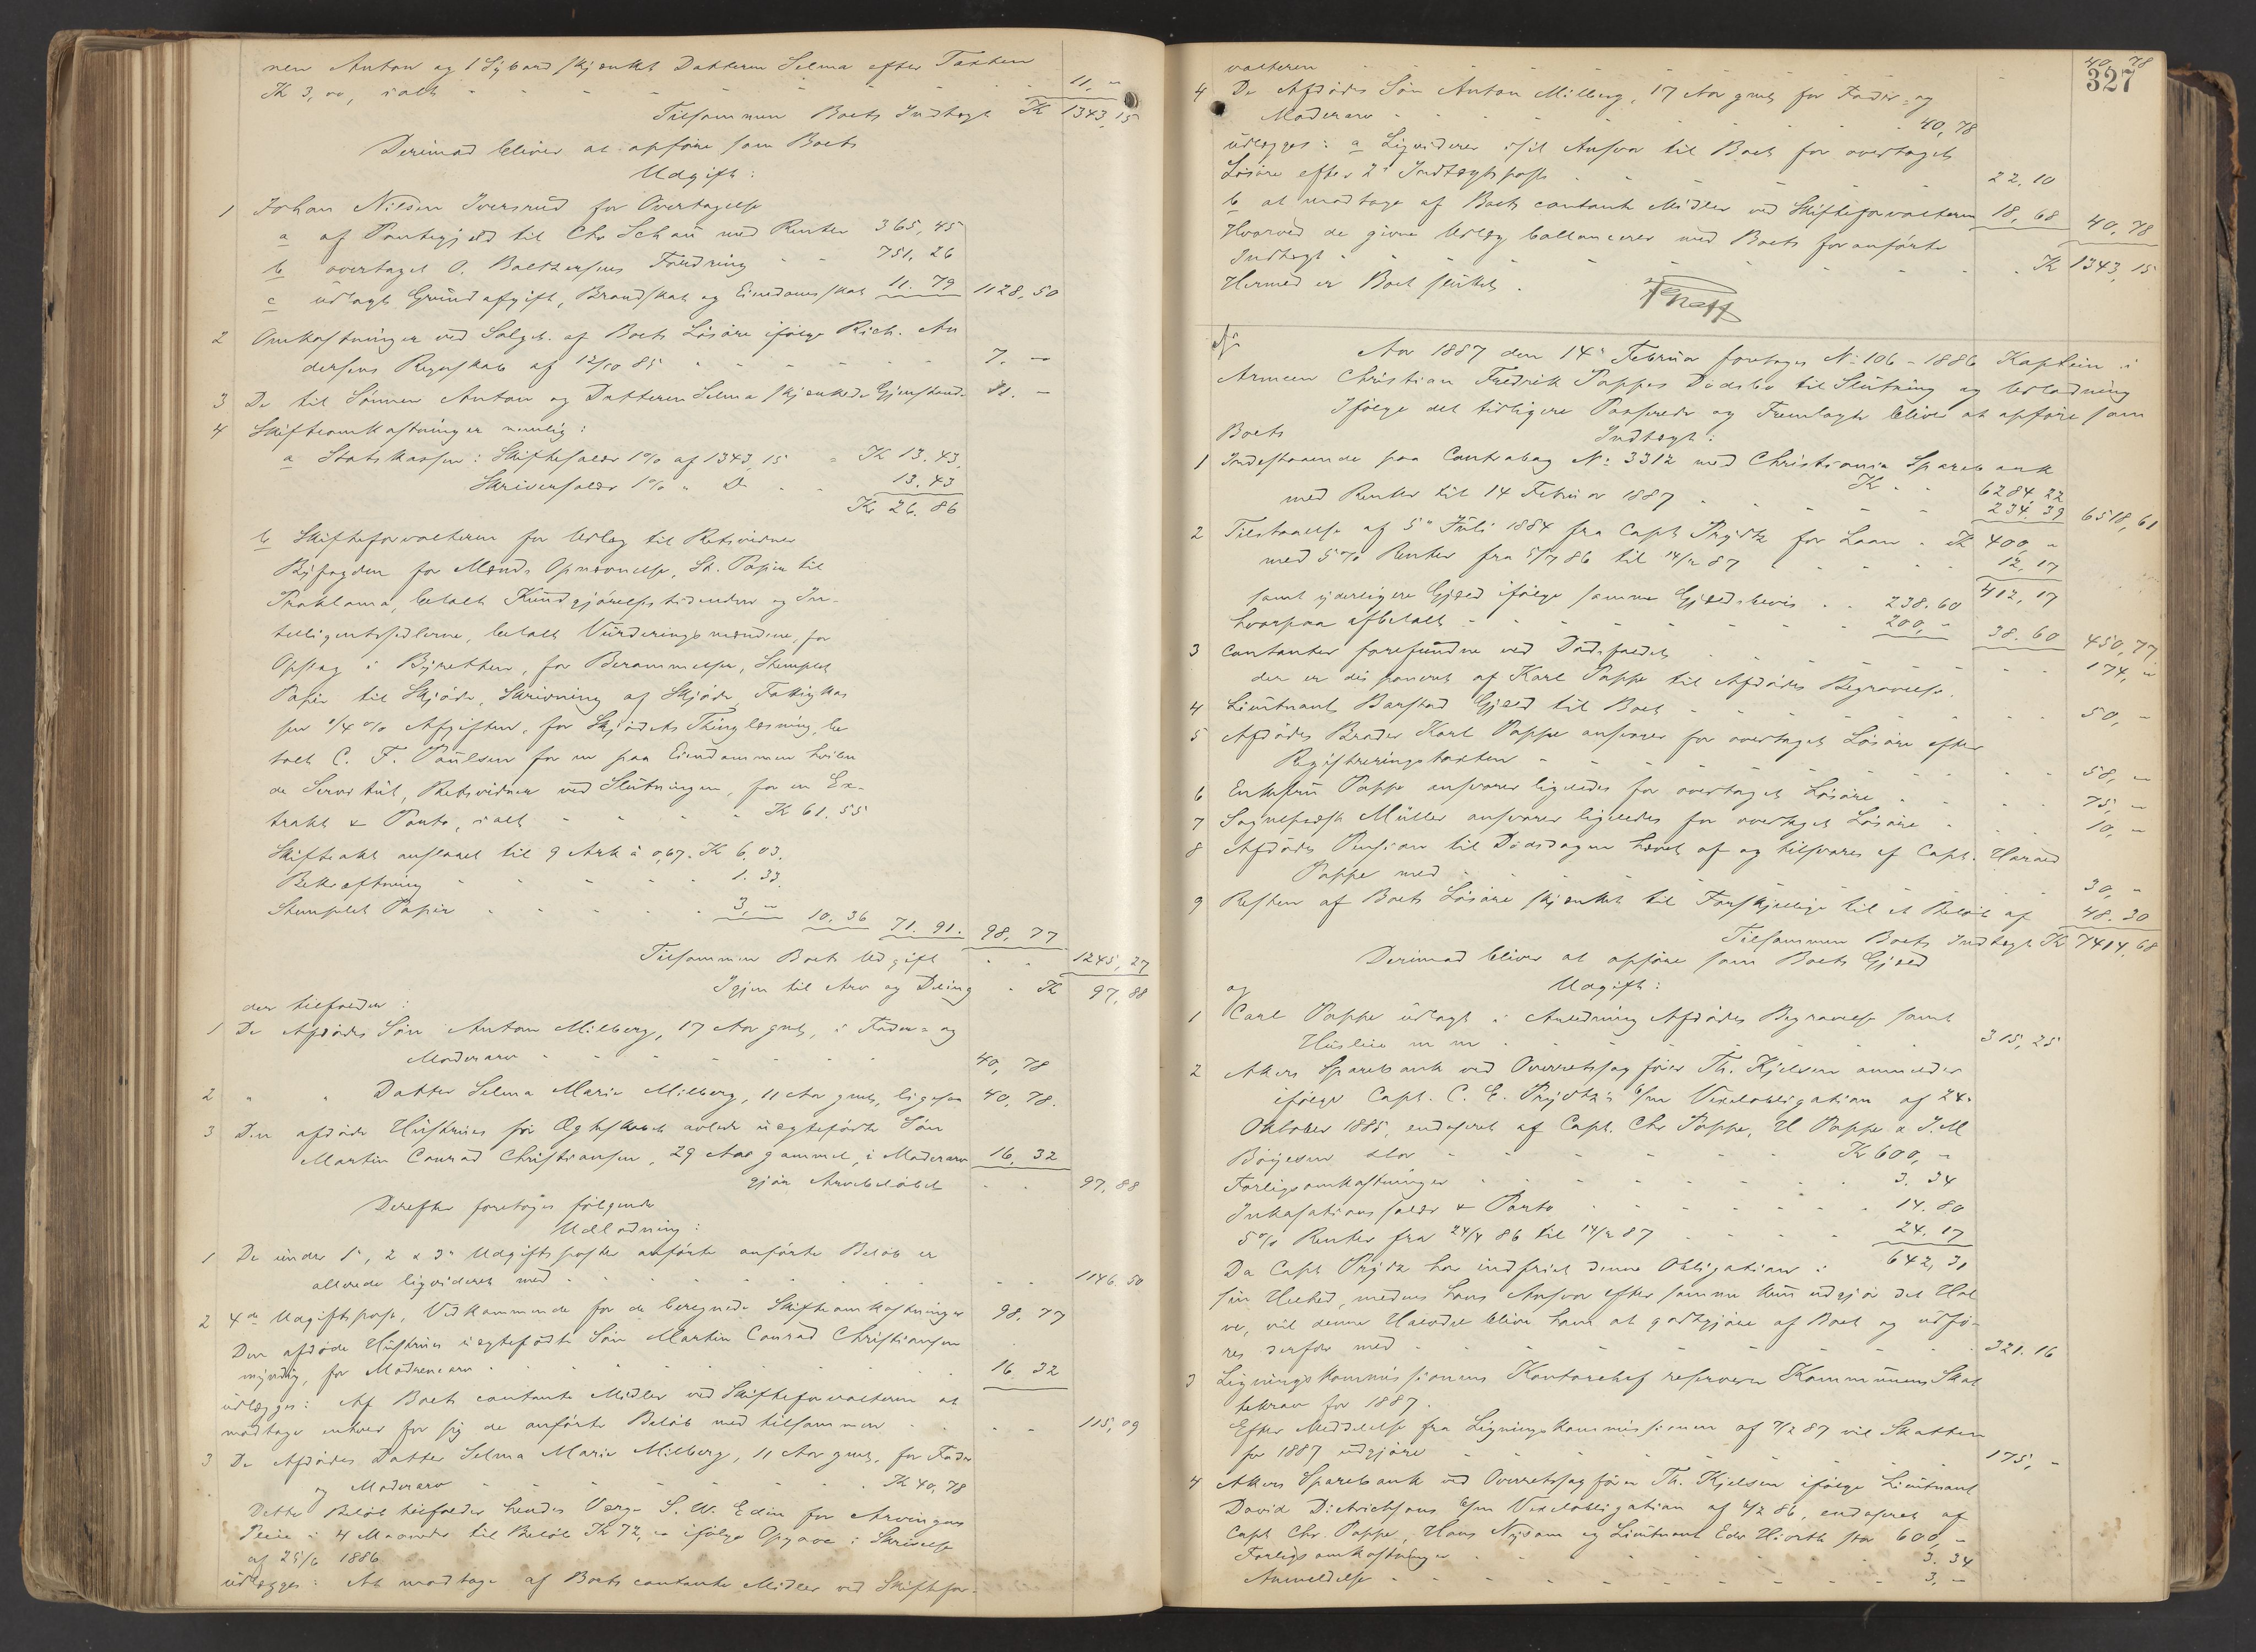 nen Anton og 1 Sybord skjænket Datteren Selma efter Taxten
Kr 3,00, ialt - - - - - - - - - 11, "
Tilsammen Boets Indtægt Kr 1343,15
Derimod bliver at opføre som Boets
Udgift:
1 Johan Nilsen Iversrud for Overtagelse
a af Pantegjæld til Chr Schou med Renter 365,45
b overtaget O. Baltzersens Fordring - - 751,26
c udlagt Grundafgift, Brandskat og Eiendomsskat 11.79 1128,50
2 Omkostninger ved Salget af Boets Løsøre ifølge Rich. An
dersens Regnskab af 12/10 85 - - - - - - 7. "
3 De til Sønnen Anton og Datteren Selma skjænkede Gjenstande 11. "
4 Skifteomkostninger nemlig:
a Statskassen: Skiftesalær 1% af 1343,15 - Kr 13.43,
Skriversalær 1% " Do - - 13.43
Kr 26.86
b Skifteforvalteren for Udlæg til Retsvidner
Byfogden for Mænds Opnævnelse, St. Papir til
Proklama, betalt Kundgjørelsestidender og In-
telligentssedlerne, betalt Vurderingsmændene, for
Opslag i Byretten, for Berammelser, Stemplet
Papir til Skjøde, Skrivning af Skjøde, Fattigkas
sen 1/4 % Afgiften, for Skjødets Thinglæsning, be
talt C. F. Poulsen for en paa Eiendommen hvilen
de Servitut, Retsvidner ved Slutningen, for en Ex-
trakt & Porto, ialt - - - - Kr 61.55
Skifteakt anslaaet til 9 Ark à 0,67. Kr 6,03.
Bekræftning - - - - - 1.33.
Stemplet Papir - - - - - 3, " 10.36 71.91. 98,77
Tilsammen Boets Udgift - - 1245,27
Igjen til Arv og Deling - Kr 97,88
der tilfalder:
1 De Afdødes Søn Anton Milberg, 17 Aar gml, i Fader- og
Moderarv - - - - - - - 40,78
2 " " Datter Selma Marie Milberg, 11 Aar gml, ligesaa 40,78.
3 Den afdøde Hustrues før Ægteskabet avlede uægtefødte Søn
Martin Conrad Christiansen, 29 Aar gammel, i Moderarv 16,32
gjør Arvebeløbet - - 97,88
Derefter foretoges følgende
Udlodning:
1 De under 1o, 2 & 3o Udgiftsposter anførte anførte Beløb er
allerede ligvideret med - - - - - - - - - 1146.50
2 4de Udgiftspost, Vedkommende for de beregnede Skifteomkostninger 98,77
Den afdøde Hustrues uægtefødte Søn Martin Conrad Christiansen
myndig, for Mødrenearv - - - - - - - - 16,32
udlægges: Af Boets contante Midler ved Skifteforvalteren at
modtage enhver for sig de anførte Beløb med tilsammen - - - 115,09
3 De Afdødes Datter Selma Marie Milberg, 11 Aar gml, for Fader
og Moderarv - - - - - - - - Kr 40,78
Dette Beløb tilfalder hendes Værge S. W. Edin for Arvingens
Pleie i 4 Maaneder til Beløb Kr 72, " ifølge Opgave i Skrivelse
af 25/6 1886
udlægges: At modtage af Boets contante Midler ved Skiftefor-
327
valteren - - - - - - - - - - 40,78
4 De Afdødes Søn Anton Milberg, 17 Aar gml for Fader- og
Moderarv - - - - - - - - 40,78
udlægges: a Ligviderer i sit Ansvar til Boet for overtaget
Løsøre efter 2o Indtægtspost - - - - - - 22.10
b at modtage af Boets contante Midler ved Skifteforvalteren 18,68 40,78
Hvorved de givne Udlæg ballancerer med Boets foranførte
Indtægt - - - - - - - - - - Kr 1343,15
Hermed er Boet sluttet.
Aar 1887 den 14de Februar foretoges No 106 - 1886 Kaptein i
Armeen Christian Fredrik Poppes Dødsbo til Slutning og Udlodning
Ifølge det tidligere Passerede og Fremlagte bliver at opføre som
Boets Indtægt:
1 Indestaaende paa Contrabog No 3312 med Christiania Sparebank
Kr - - 6284,22
med Renter til 14 Februar 1887 - - - - - 234.39 6518,61
2 Tilstaaelse af 5te Juli 1884 fra Capt Prydtz for Laan - Kr 400, "
med 5% Renter fra 5/7 86 til 14/2 87 - - - - 12,17
412,17
samt yderligere Gjæld ifølge samme Gjældsbevis - - 238.60
hvorpaa afbetalt - - - - - - - - 200, " 38.60 450,77
3 Contanter forefundne ved Dødsfaldet - - - - - - - 174, "
der er disponeret af Karl Poppe til Afdødes Begravelse.
4 Lieutnant Barstad Gjæld til Boet - - - - - - - 50, "
5 Afdødes Broder Karl Poppe ansvarer for overtaget Løsøre efter
Registreringstaxten - - - - - - - - - - 58, "
6 Enkefru Poppe ansvarer ligeledes for overtaget Løsøre - - - 75, "
7 Sognepræst Müller ansvarer ligeledes for overtaget Løsøre - - - 10, "
8 Afdødes Pension til Dødsdagen hævet af og tilsvares af Capt. Harald
Poppe med - - - - - - - - - - 30, "
9 Resten af Boets Løsøre skjænket til Forskjellige til et Beløb af 48.30
Tilsammen Boets Indtægt Kr 7414,68
Derimod bliver at opføre som Boets Gjæld
og Udgift:
1 Carl Poppe udlagt i Anledning Afdødes Begravelse samt
Husleie m m - - - - - - - - - 315,25
2 Akers Sparebank ved Overretssagfører Th. Kjelsen anmelder
ifølge Capt. C. E. Prydtz's 6/m Vexelobligation af 24.
Oktober 1885, endosseret af Capt. Chr Poppe, H Poppe & J. M
Böyesen stor - - - - - - - Kr 600, "
Forligsomkostninger - - - - - - - - 3.34
Inkassationssalær & Porto - - - - - - 14.80
5% Renter fra 24/4 86 til 14/2 87 - - - - 24.17
642,31
Da Capt Prydz har indfriet denne Obligation i
sin Helhed, medens hans Ansvar efter samme kun udgjør det Hal
ve, vil denne Halvdel blive ham at godtgjøre af Boet og udfø-
res derfor med - - - - - - - - - 321.16
3 Ligningskommissionens Kontorchef reserverer Kommunens Skat
tekrav for 1887.
Efter Meddelelse fra Ligningskommissionen af 7/2 87 vil Skatten
for 1887 udgjøre - - - - - - - - - 175, "
4 Akers Sparebank ved Overretssagfører Th. Kjelsen ifølge Lieutnant
David Dietrichsons 6/m Vexelobligation af 6/2 86, endosseret af
Capt Chr. Poppe, Hans Nysom og Lieutnant Edv Hiorth stor 600, "
Forligsomkostninger - - - - - - - - 3.34
Anmeldelse - - - - - - - - - - 3, "